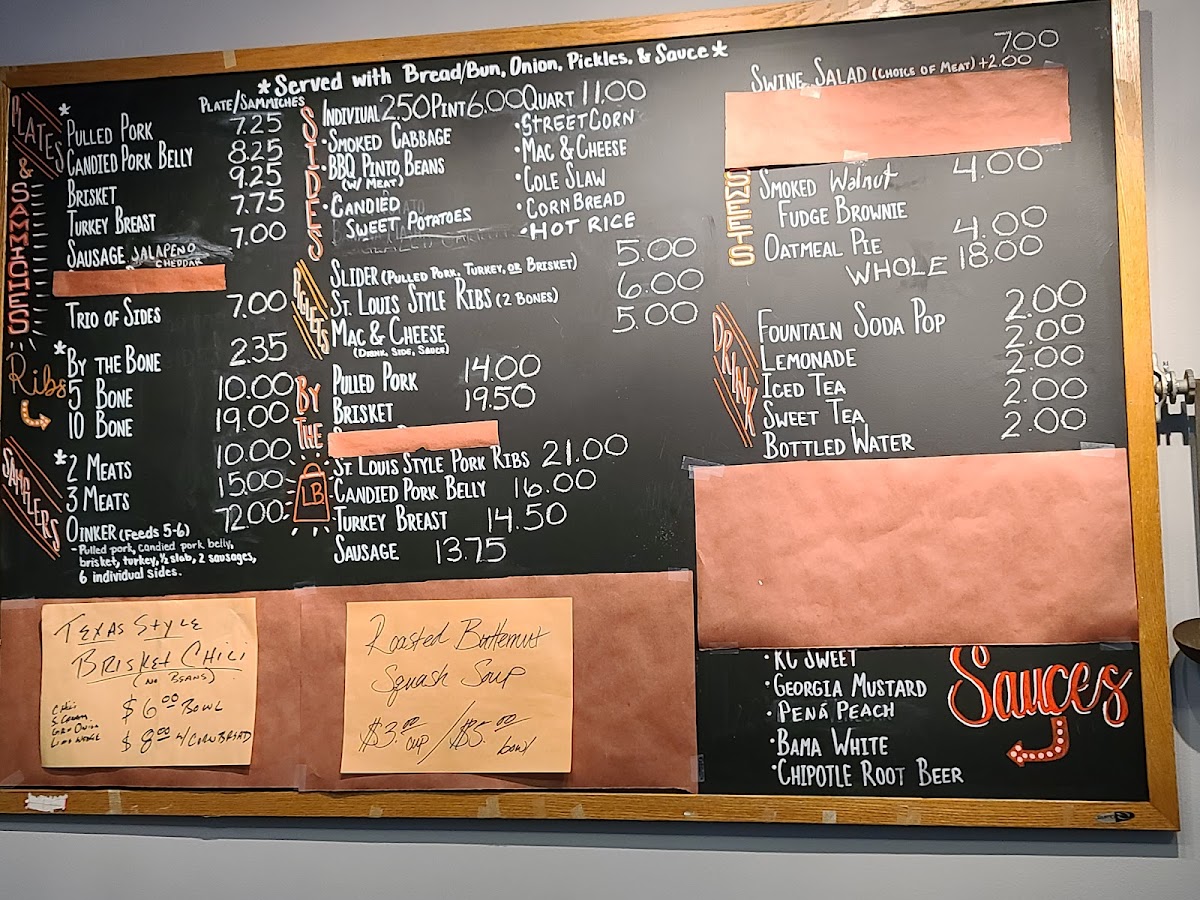 *Served with Bread/Bun, Onion, Pickles, & Sauce*
PLATES & SAMMICHES
PLATE/SAMMICHES
*
PULLED PORK 7.25
CANDIED PORK BELLY 8.25
BRISKET 9.25
TURKEY BREAST 7.75
SAUSAGE JALAPENO 7.00
CHEDDAR
TRIO OF SIDES 7.00
Ribs
*BY THE BONE 2.35
5 BONE 10.00
10 BONE 19.00
SAMPLERS
*2 MEATS 10.00
3 MEATS 15.00
OINKER (FEEDS 5-6) 72.00
- Pulled pork, candied pork belly,
brisket, turkey, ½ slab, 2 sausages,
6 individual sides.
SIDES
INDIVIUAL 2.50 PINT 6.00 QUART 11.00
•SMOKED CABBAGE
•BBQ PINTO BEANS
(W/ MEAT)
•CANDIED
SWEET POTATOES
•STREET CORN
•MAC & CHEESE
•COLE SLAW
•CORN BREAD
•HOT RICE
PIGLETS
SLIDER (PULLED PORK, TURKEY, OR BRISKET) 5.00
ST. LOUIS STYLE RIBS (2 BONES) 6.00
MAC & CHEESE 5.00
(DRINK, SIDE, SAUCE)
BY THE LB.
PULLED PORK 14.00
BRISKET 19.50
ST LOUIS STYLE PORK RIBS 21.00
CANDIED PORK BELLY 16.00
TURKEY BREAST 14.50
SAUSAGE 13.75
7.00
SWINE SALAD (CHOICE OF MEAT) +2.00
SWEETS
SMOKED Walnut 4.00
FUDGE BROWNIE
OATMEAL PIE 4.00
WHOLE 18.00
DRINK
FOUNTAIN SODA POP 2.00
LEMONADE 2.00
ICED TEA 2.00
SWEET TEA 2.00
BOTTLED WATER 2.00
Sauces
• KC SWEET
•GEORGIA MUSTARD
• PENÁ PEACH
•BAMA WHITE
•CHIPOTLE ROOT BEER
TEXAS STYLE
BRISKET CHILI
(NO BEANS)
$6.00 BOWL
$8.00 w/ CORNBREAD
S. CREAM
LIME WEDGE
Roasted Butternut
Squash Soup
$3.00 cup / $5.00 bowl